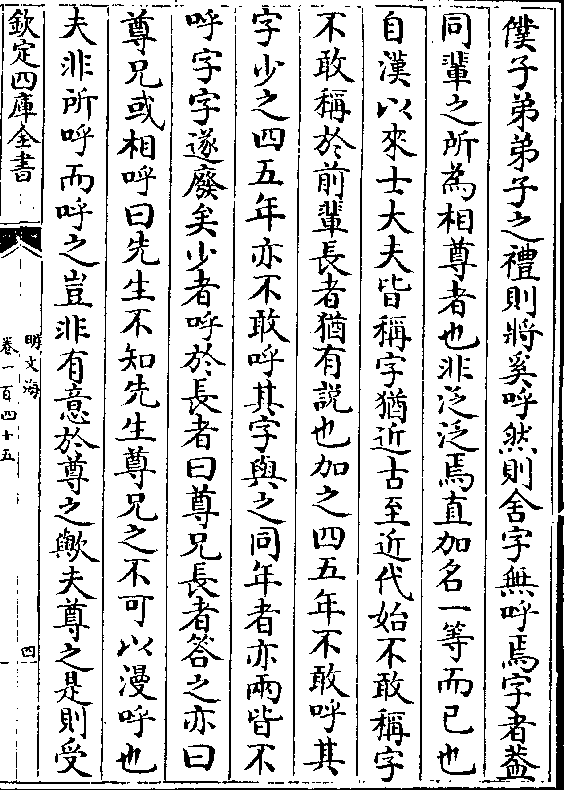 僕子弟弟子之禮則將奚呼然則舍字無呼焉字者葢
同輩之所為相尊者也非泛泛焉直加名一等而已也
自漢以來士大夫皆稱字猶近古至近代始不敢稱字
不敢稱於前輩長者猶有説也加之四五年不敢呼其
字少之四五年亦不敢呼其字與之同年者亦兩皆不
呼字字遂廢矣少者呼於長者曰尊兄長者答之亦曰
尊兄或相呼曰先生不知先生尊兄之不可以漫呼也
夫非所呼而呼之豈非有意於尊之歟夫尊之是則受
欽定四庫全書
明文海
卷一百四十五
四